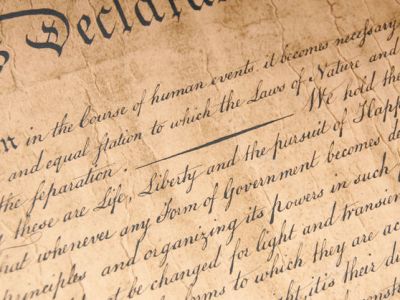 Declara
in the Course of human events it becomes necessary
and equal station to which the Laws of Nature and
the separation. We hold the
these are Life, Liberty and the pursuit of Happ
hat whenever any Form of Government becomes de
rinciples and organizing its powers in such
be changed for light and transien
orms to which they are ac
ight, it is their di